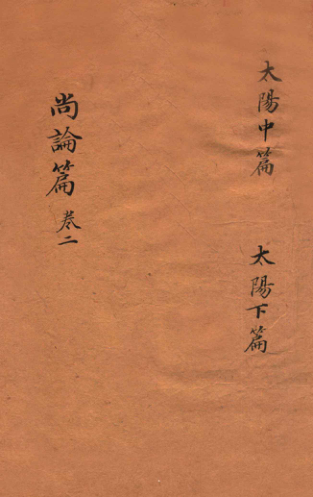 太陽中篇
太陽下篇
尚論篇 卷二